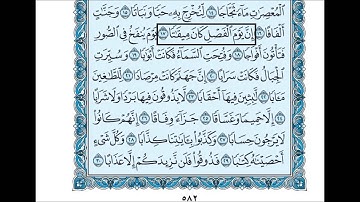 ٱلْمُعْصِرَٰتِ مَآءً ثَجَّاجًا ١٤ لِّنُخْرِجَ بِهِۦ حَبًّا وَنَبَاتًا ١٥ وَجَنَّٰتٍ
أَلْفَافًا ١٦ إِنَّ يَوْمَ ٱلْفَصْلِ كَانَ مِيقَٰتًا ١٧ يَوْمَ يُنفَخُ فِي ٱلصُّورِ
فَتَأْتُونَ أَفْوَاجًا ١٨ وَفُتِحَتِ ٱلسَّمَآءُ فَكَانَتْ أَبْوَٰبًا ١٩ وَسُيِّرَتِ
ٱلْجِبَالُ فَكَانَتْ سَرَابًا ٢٠ إِنَّ جَهَنَّمَ كَانَتْ مِرْصَادًا ٢١ لِّلطَّٰغِينَ
مَـَٔابًا ٢٢ لَّٰبِثِينَ فِيهَآ أَحْقَابًا ٢٣ لَّا يَذُوقُونَ فِيهَا بَرْدًا وَلَا شَرَابًا
٢٤ إِلَّا حَمِيمًا وَغَسَّاقًا ٢٥ جَزَآءً وِفَاقًا ٢٦ إِنَّهُمْ كَانُوا۟
لَا يَرْجُونَ حِسَابًا ٢٧ وَكَذَّبُوا۟ بِـَٔايَٰتِنَا كِذَّابًا ٢٨ وَكُلَّ شَىْءٍ
أَحْصَيْنَٰهُ كِتَٰبًا ٢٩ فَذُوقُوا۟ فَلَن نَّزِيدَكُمْ إِلَّا عَذَابًا ٣٠
٥٨٢